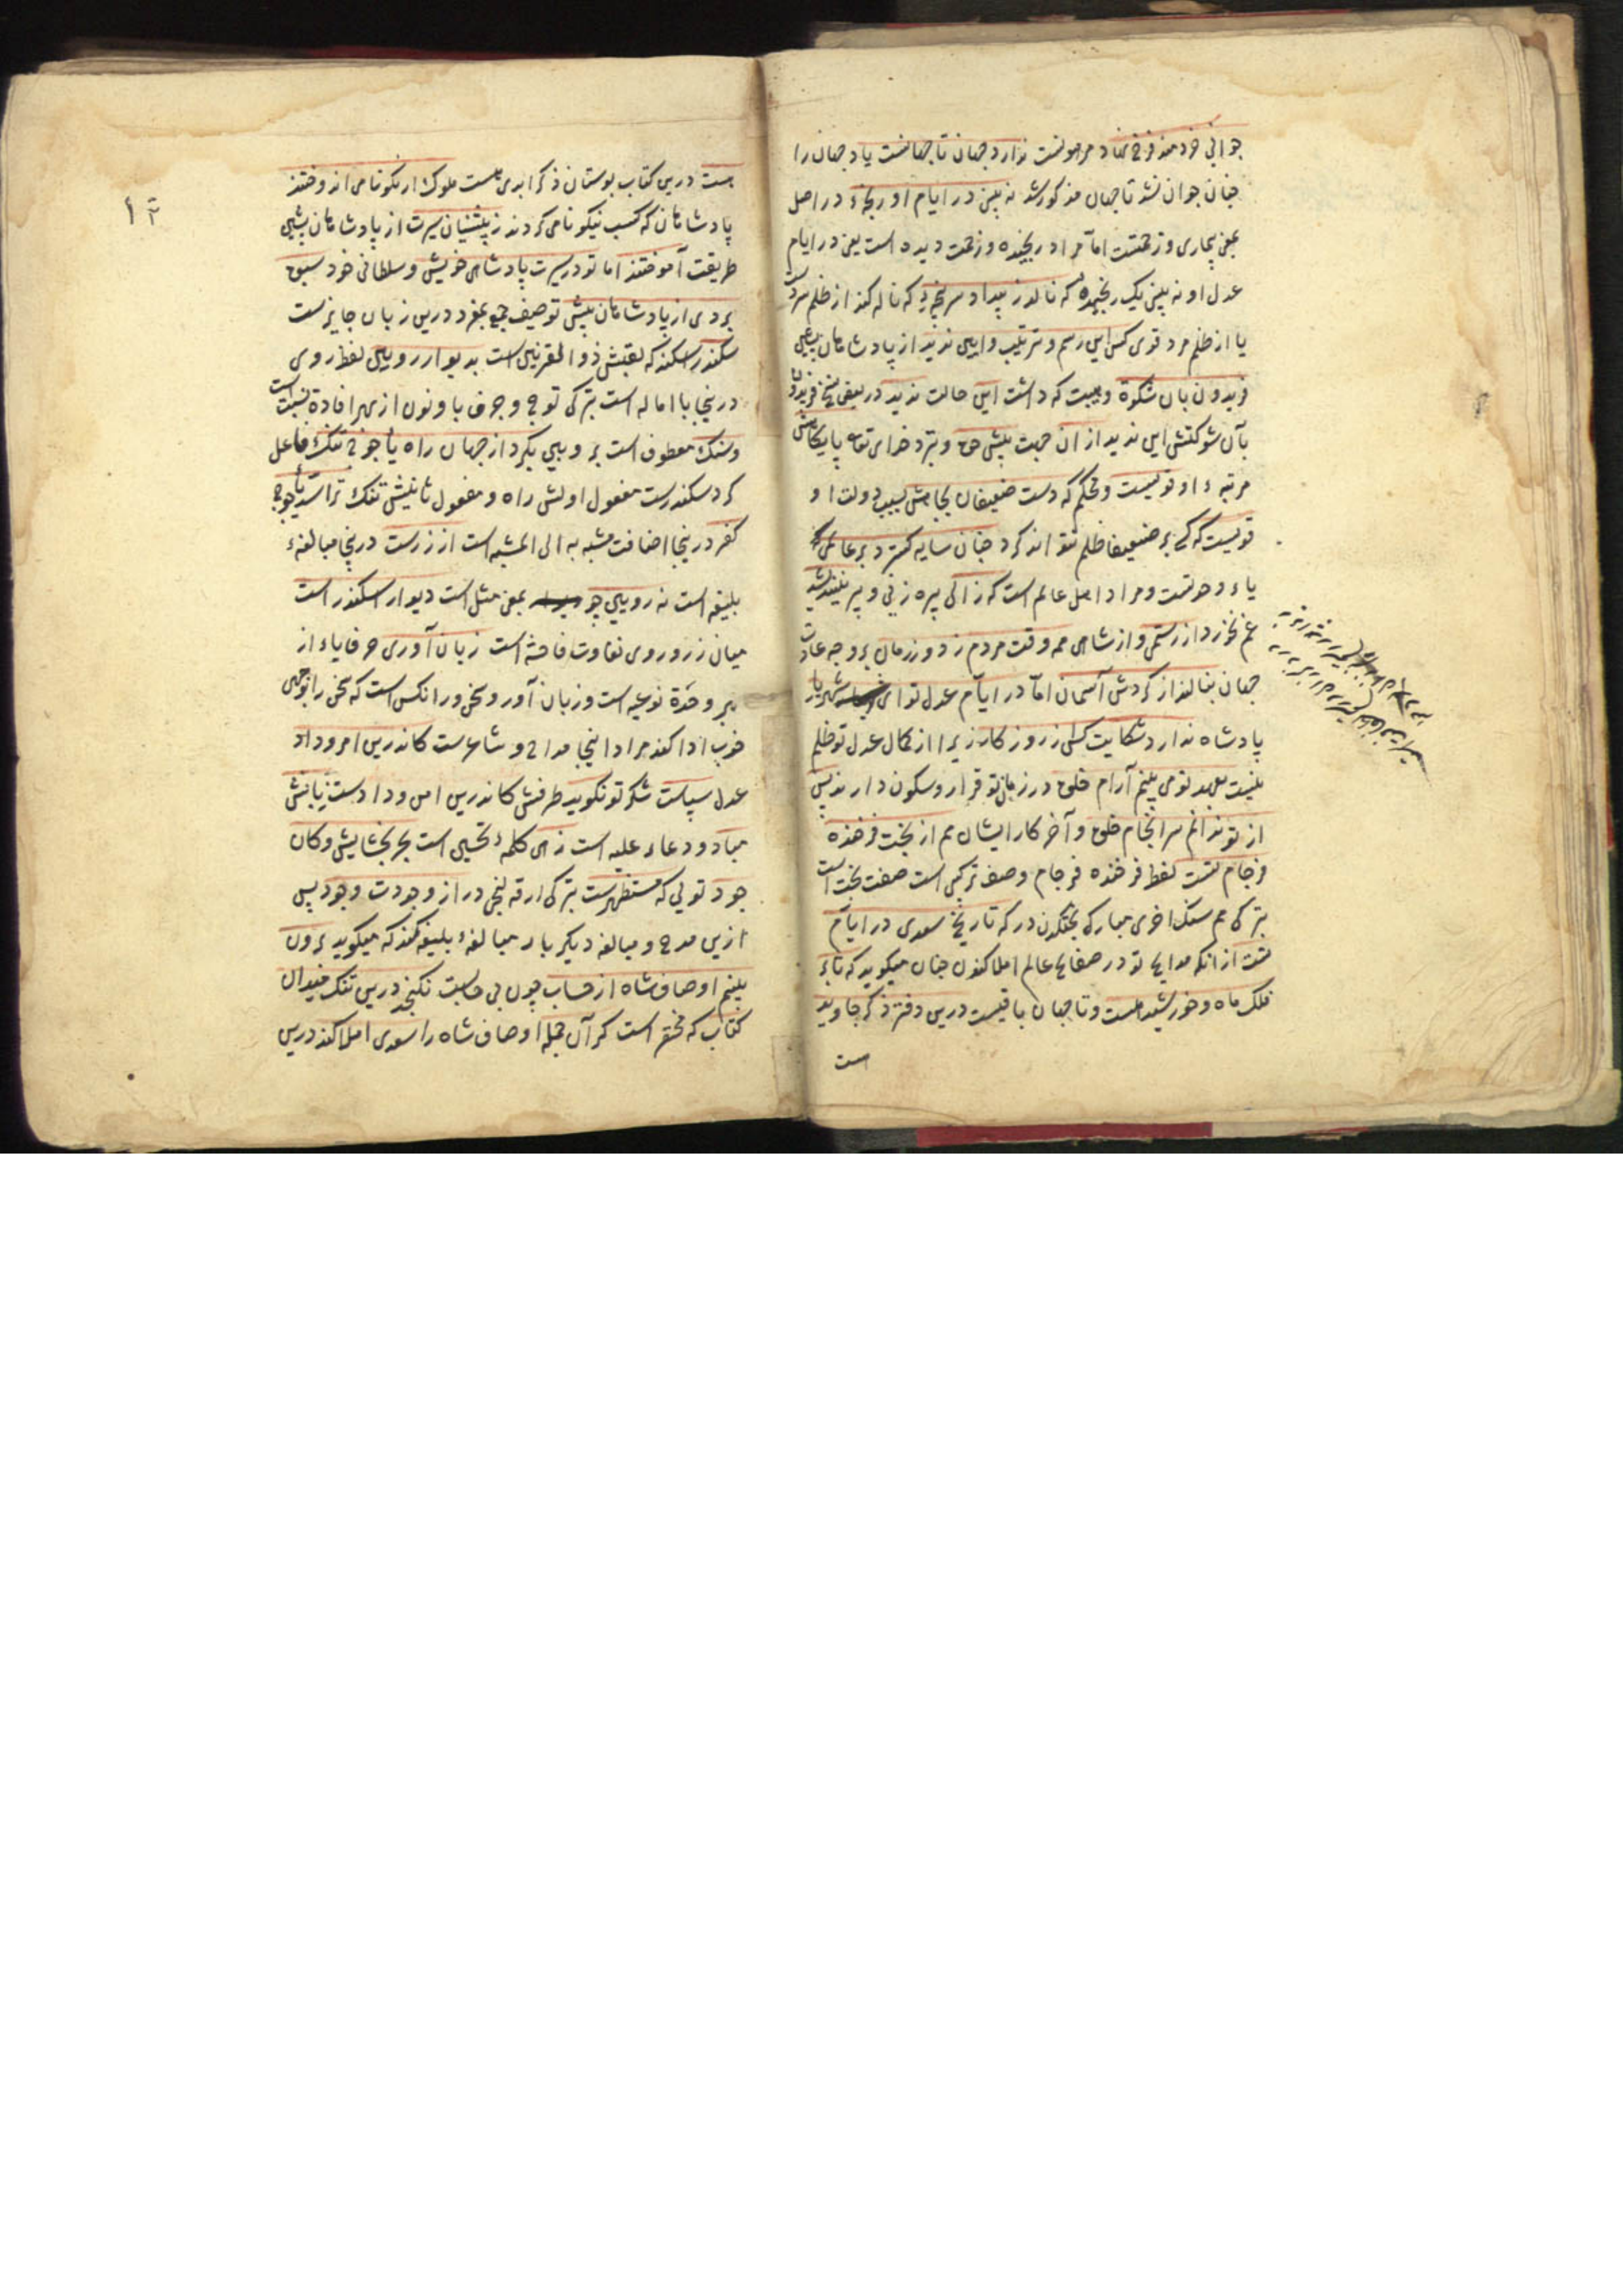 جوانی خردمند فرخ نهاد مرهونست ندارد جهان تا جهانست یاد جهان را
چنان جوان نشد تا جهان مذکور شد نه بینی در ایام او رنجهٔ در اصل
بمعنی بیماری و زحمتست اما مراد رنجیده و زحمت دیده است یعنی در ایام
عدل او نه بینی یک رنجیده که نالد ز بیداد سرپنجهٔ که ناله کند از ظلم
یا از ظلم مرد قوی کس این رسم و ترتیب و آیین ندید از پادشاهان
فریدون بآن شکوه و هیبت که داشت این حالت ندید در بعضی نسخ فریدون
بآن شوکتش این ندید از آن جهت پیش حق و نزد خدای تعالی پایگاهش
مرتبهٔ او قویست و محکم که دست ضعیفان بجاهش بسبب دولت او
قویست که کسی بر ضعیفا ظلم نتواند کرد چنان سایه گسترد بر عالمی
یاء وحدتست و مراد اهل عالم است که زالی پیره زنی و پیر نیندیشد
غم نخورد از رستمی و از شاهی همه وقت مردم ز دور زمان بر وجه عادت
جهان بنالند از گردش آسمان اما در ایام عدل تو ای شهریار
پادشاه ندارد شکایت کسی ز روزگار زیرا از کمال عدل تو ظلم
نیست بعهد تو می بینم آرام خلق در زمان تو قرار و سکون دارند پس
از تو ندانم سرانجام خلق و آخر کار ایشان هم از بخت فرخنده
فرجام تست لفظ فرخنده فرجام وصف ترکیبی است صفت بخت است
بترکی هم سنک اخری مبارک بختکدن در که تاریخ سعدی در ایام
تست از آنکه مدایح تو در صفایح عالم املا کنون چنان میگوید که تا بر
فلک ماه و خورشید هست و تا جهان باقیست درین دفتر ذکر جاوید
هست
۱۲
هست درین کتاب بوستان ذکر ابدی هست ملوک ار نکونامی اندوختند
پادشاهان که کسب نیکونامی کردند ز پیشینیان سیرت از پادشاهان پیشین
طریقت آموختند اما تو در سیرت پادشاهی خویش و سلطانی خود سبق
بردی از پادشاهان پیش توصیف جمع بمفرد درین زبان جایزست
سکندر اسکندر که لقبش ذو القرنین است بدیوار رویین لفظ روی
درینجا با اماله است بترکی توج و حرف یا و نون از بهر افادهٔ نسبت است
و سنگ معطوف است بر رویین بکرد از جهان راه یأجوج تنگ فاعل
کرد سکندرست مفعول اولش راه و مفعول ثانیش تنگ ترا سد یأجوج
کفر درینجا اضافت مشبه به الی المشبه است از زرست درینجا مبالغهٔ
بلیغه است نه رویین چو بمعنی مثل است دیوار اسکندر است
میان زر و روی تفاوت فاحشه است زبان آوری حرف یاء از
بر وحدة نوعیه است و زبان آور و سخنور آنکس است که سخن را بوجهی
خوب ادا کند مراد اینجا مداح و شاعرست کاندرین امن و داد
عدل سپاست شکر تو نگوید طرفش کاندرین امن و دادست زبانش
مباد و دعاء علیه است زهی کلمهٔ تحسین است بحر بخشایش و کان
جود تویی که مستظهرست بترکی ارقه لنجی در از وجودت وجود پس
ازین مدح و مبالغه دیگر بار مبالغهٔ بلیغه کند که میگوید برون
بینم اوصاف شاه از حساب چون بی حسابست نگنجد درین تنگ میدان
کتاب که مختصر است گر آن جمله اوصاف شاه را سعدی املا کند درین